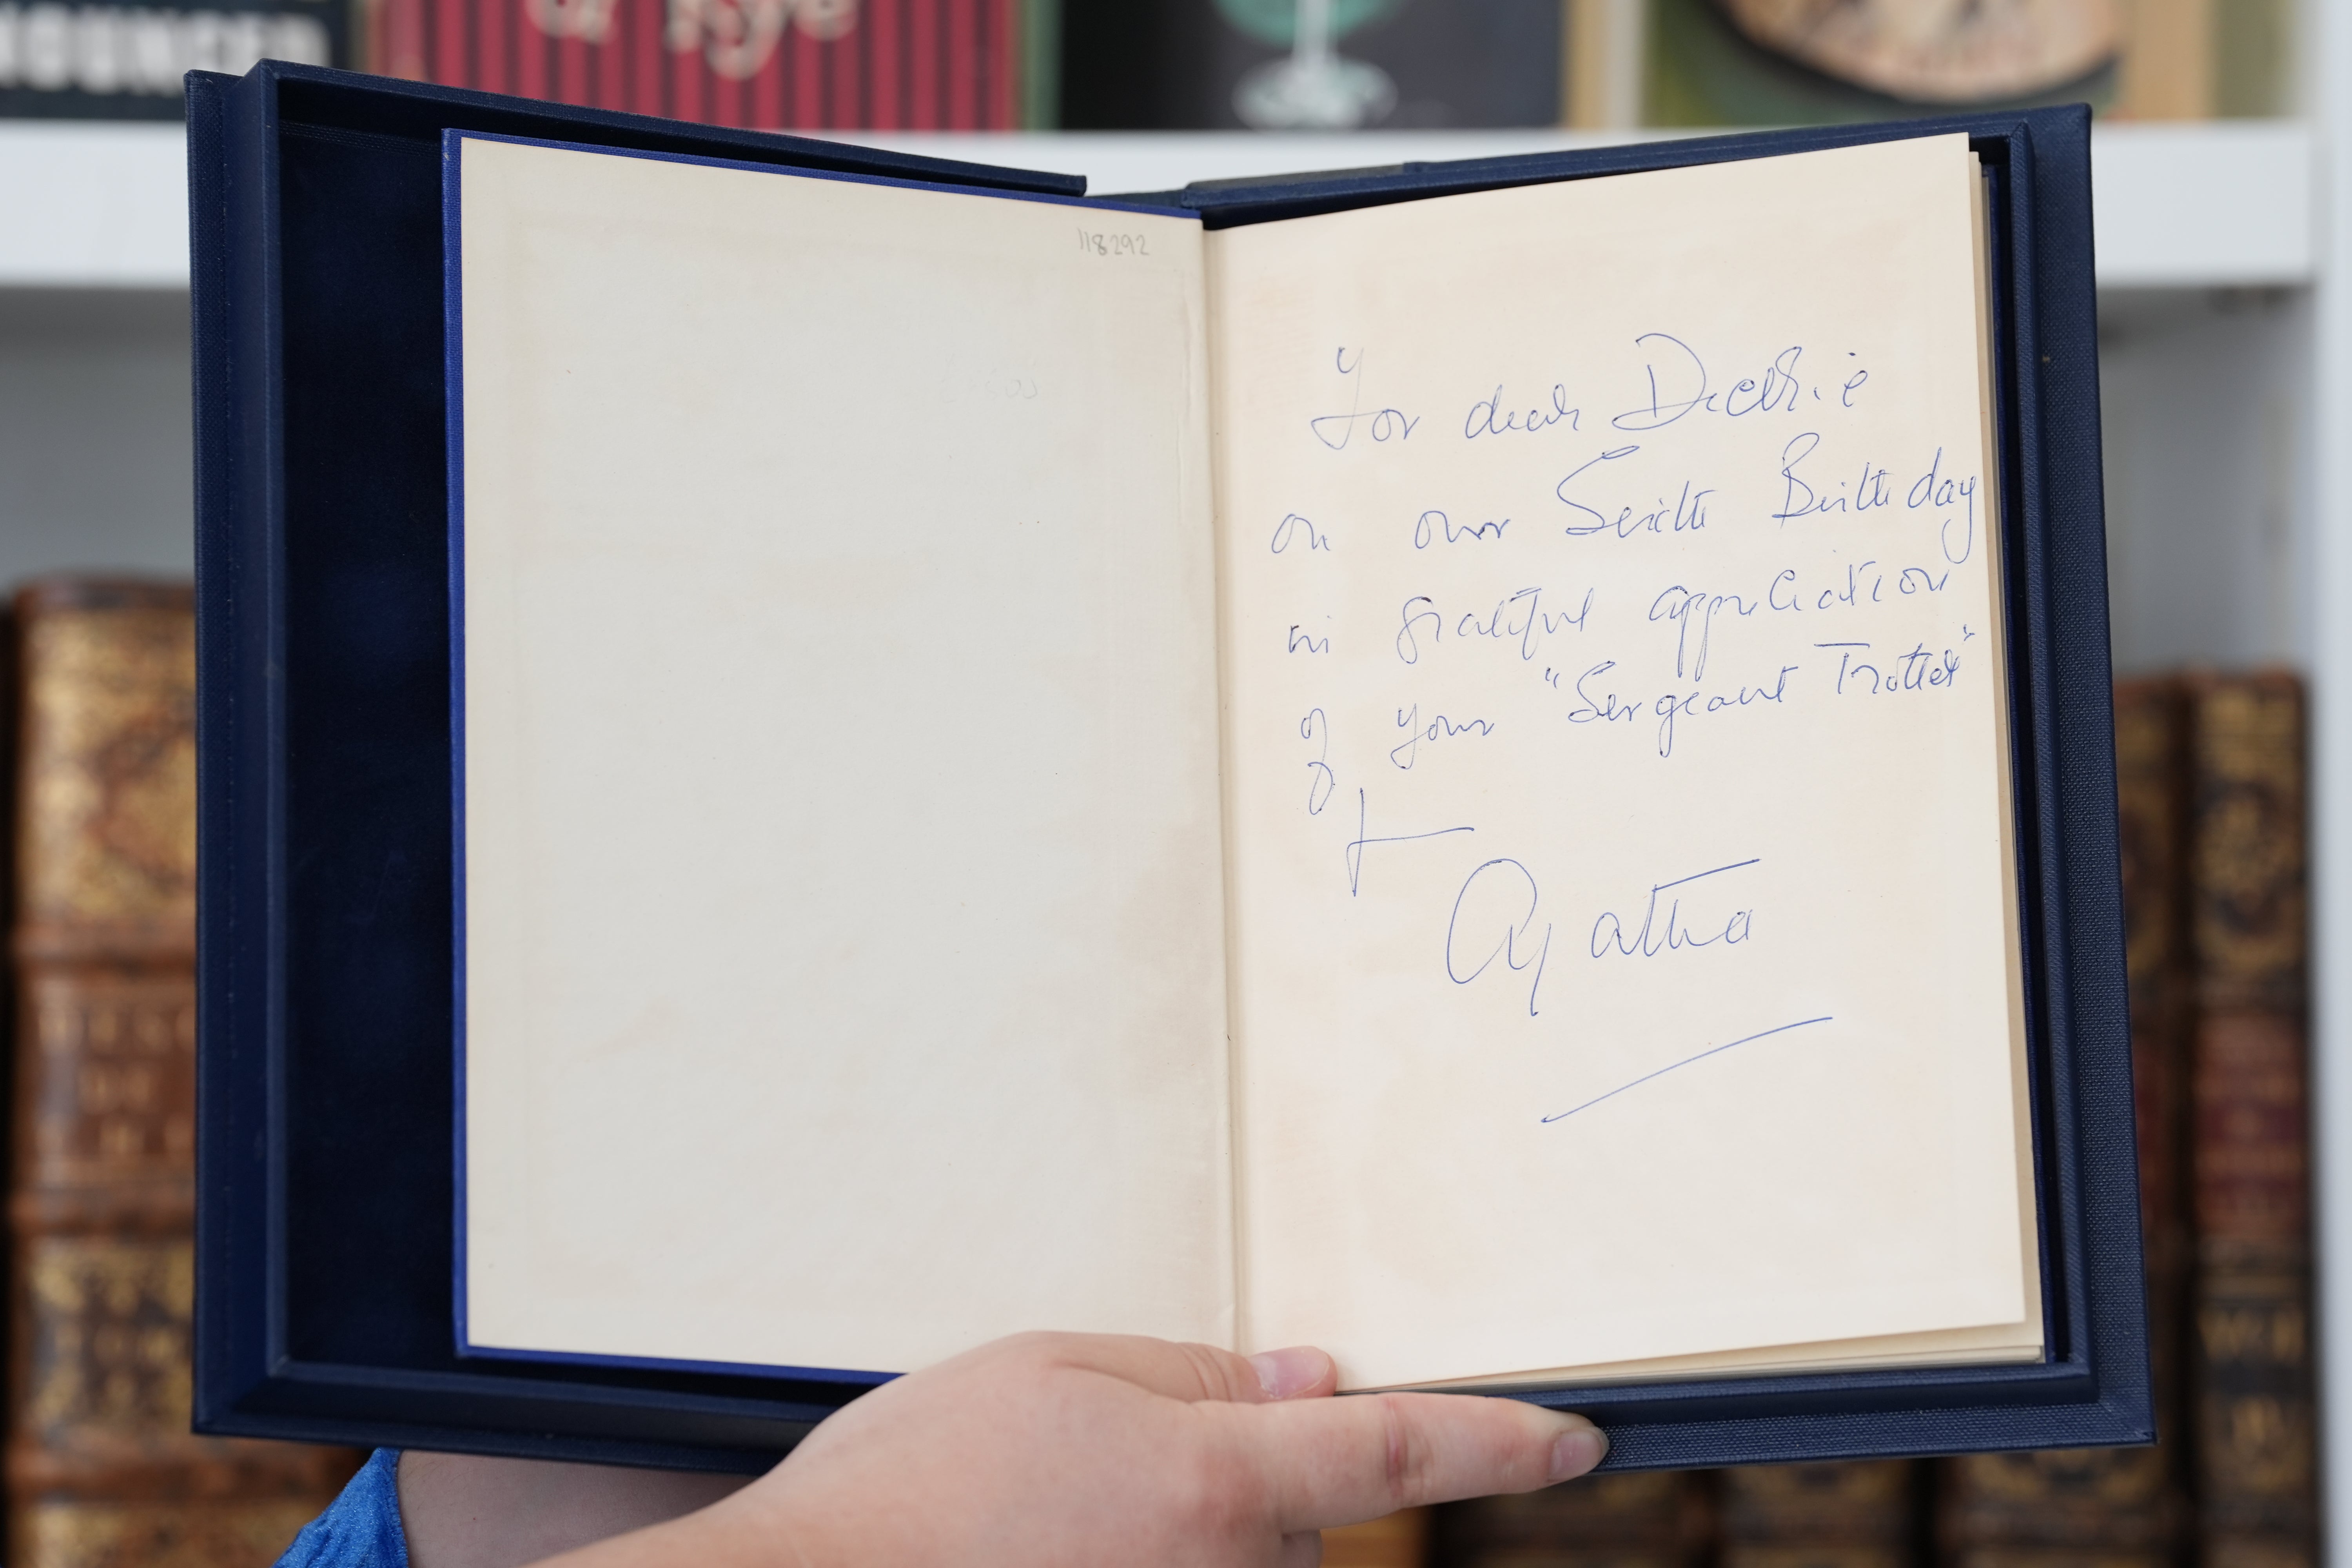 NOUNCED
of Rye
118292
For dear Dickie
on our Sixth Birthday
in grateful appreciation
of your "Sergeant Trotter"
Agatha